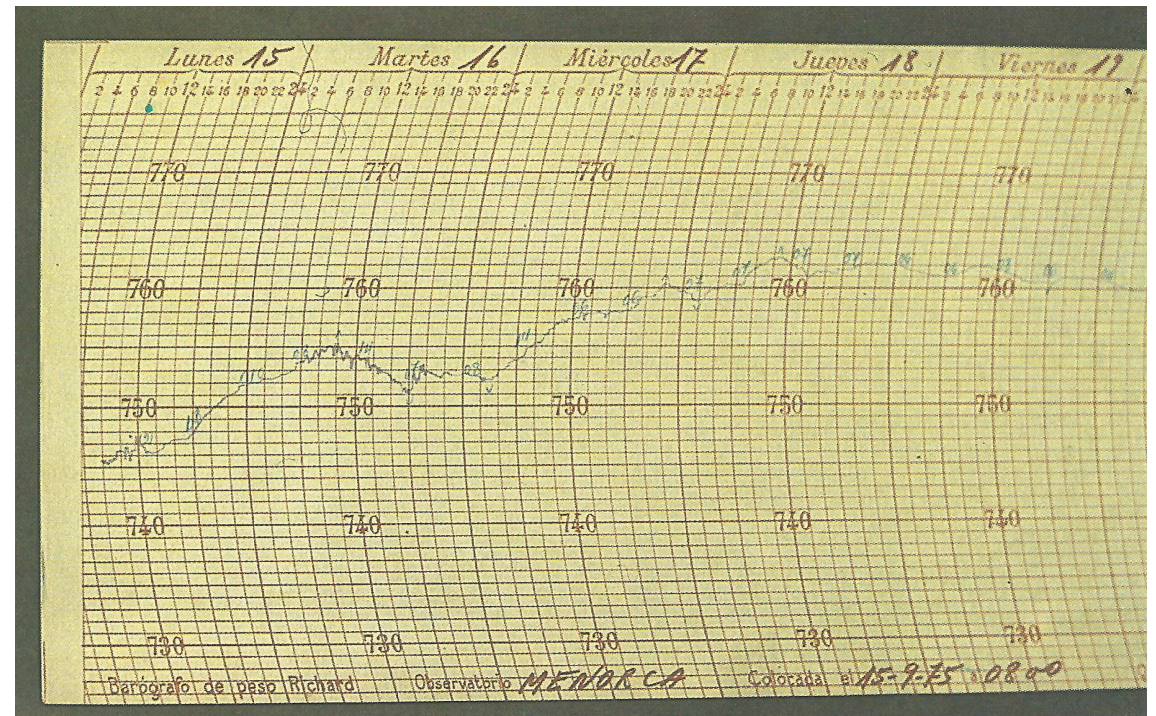 Lunes 15 Martes 16 Miércoles 17 Jueves 18 Viernes 19
2 4 6 8 10 12 14 16 18 20 22 24 2 4 6 8 10 12 14 16 18 20 22 24 2 4 6 8 10 12 14 16 18 20 22 24 2 4 6 8 10 12 14 16 18 20 22 24 2 4 6 8 10 12 14 16 18 20 22 24
770 770 770 770 770
760 760 760 760 760
750 750 750 750 750
740 740 740 740 740
730 730 730 730 730
Barógrafo de peso Richard Observatorio MENORCA Colocada el 15-9-75 a 08 00